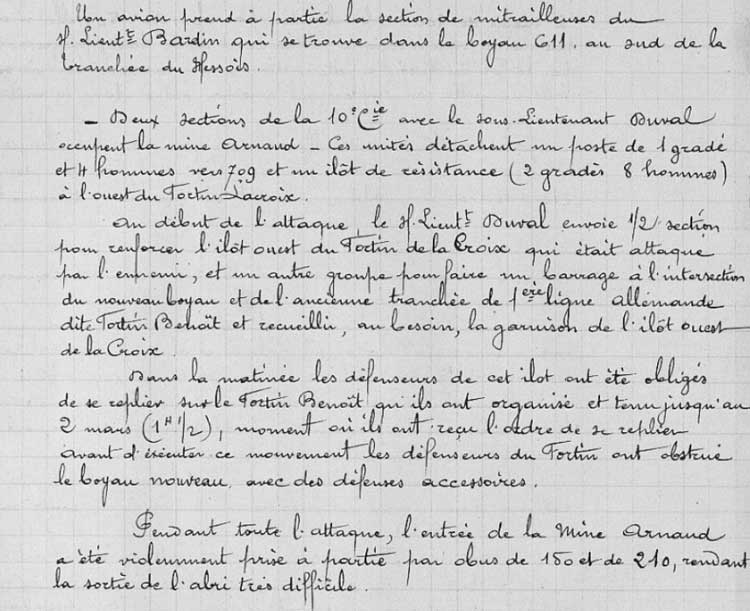 Un avion prend à partie la section de mitrailleuses du
s/. Lieut.t Bardin qui se trouve dans le boyau 611, au sud de la
tranchée du Hessois.
— Deux sections de la 10e Cie avec le sous-Lieutenant Duval
occupent la mine Arnaud – Ces unités détachent un poste de 1 gradé
et 4 hommes vers 709 et un ilôt de résistance (2 gradés 8 hommes)
à l'ouest du Fortin Lacroix.
Au début de l'attaque, le s/. Lieut.t Duval envoie 1/2 section
pour renforcer l'ilôt ouest du Fortin de la Croix qui était attaqué
par l'ennemi, et un autre groupe pour faire un barrage à l'intersection
du nouveau boyau et de l'ancienne tranchée de 1ère ligne allemande
dite Fortin Benoît et recueillir, au besoin, la garnison de l'ilôt ouest
de la Croix.
Dans la matinée les défenseurs de cet ilot ont été obligés
de se replier sur le Fortin Benoît qu'ils ont organisé et tenu jusqu'au
2 mars (1H 1/2), moment où ils ont reçu l'ordre de se replier
avant d'éxécuter ce mouvement les défenseurs du Fortin ont obstrué
le boyau nouveau avec des défenses accessoires.
Pendant toute l'attaque, l'entrée de la Mine Arnaud
a été violemment prise à partie par obus de 150 et de 210, rendant
la sortie de l'abri très difficile.